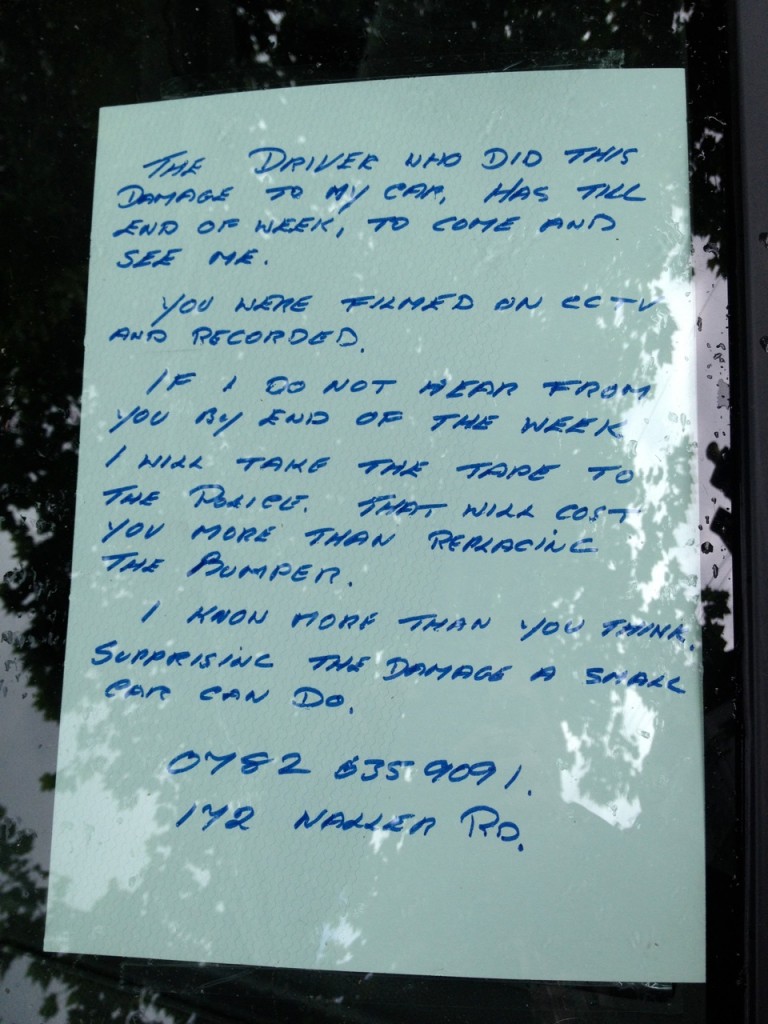 THE DRIVER WHO DID THIS
DAMAGE TO MY CAR, HAS TILL
END OF WEEK, TO COME AND
SEE ME.
YOU WERE FILMED ON CCTV
AND RECORDED.
IF I DO NOT HEAR FROM
YOU BY END OF THE WEEK
I WILL TAKE THE TAPE TO
THE POLICE. THAT WILL COST
YOU MORE THAN REPLACING
THE BUMPER.
I KNOW MORE THAN YOU THINK.
SURPRISING THE DAMAGE A SMALL
CAR CAN DO.
0782 635 9091.
172 WALLER RD.